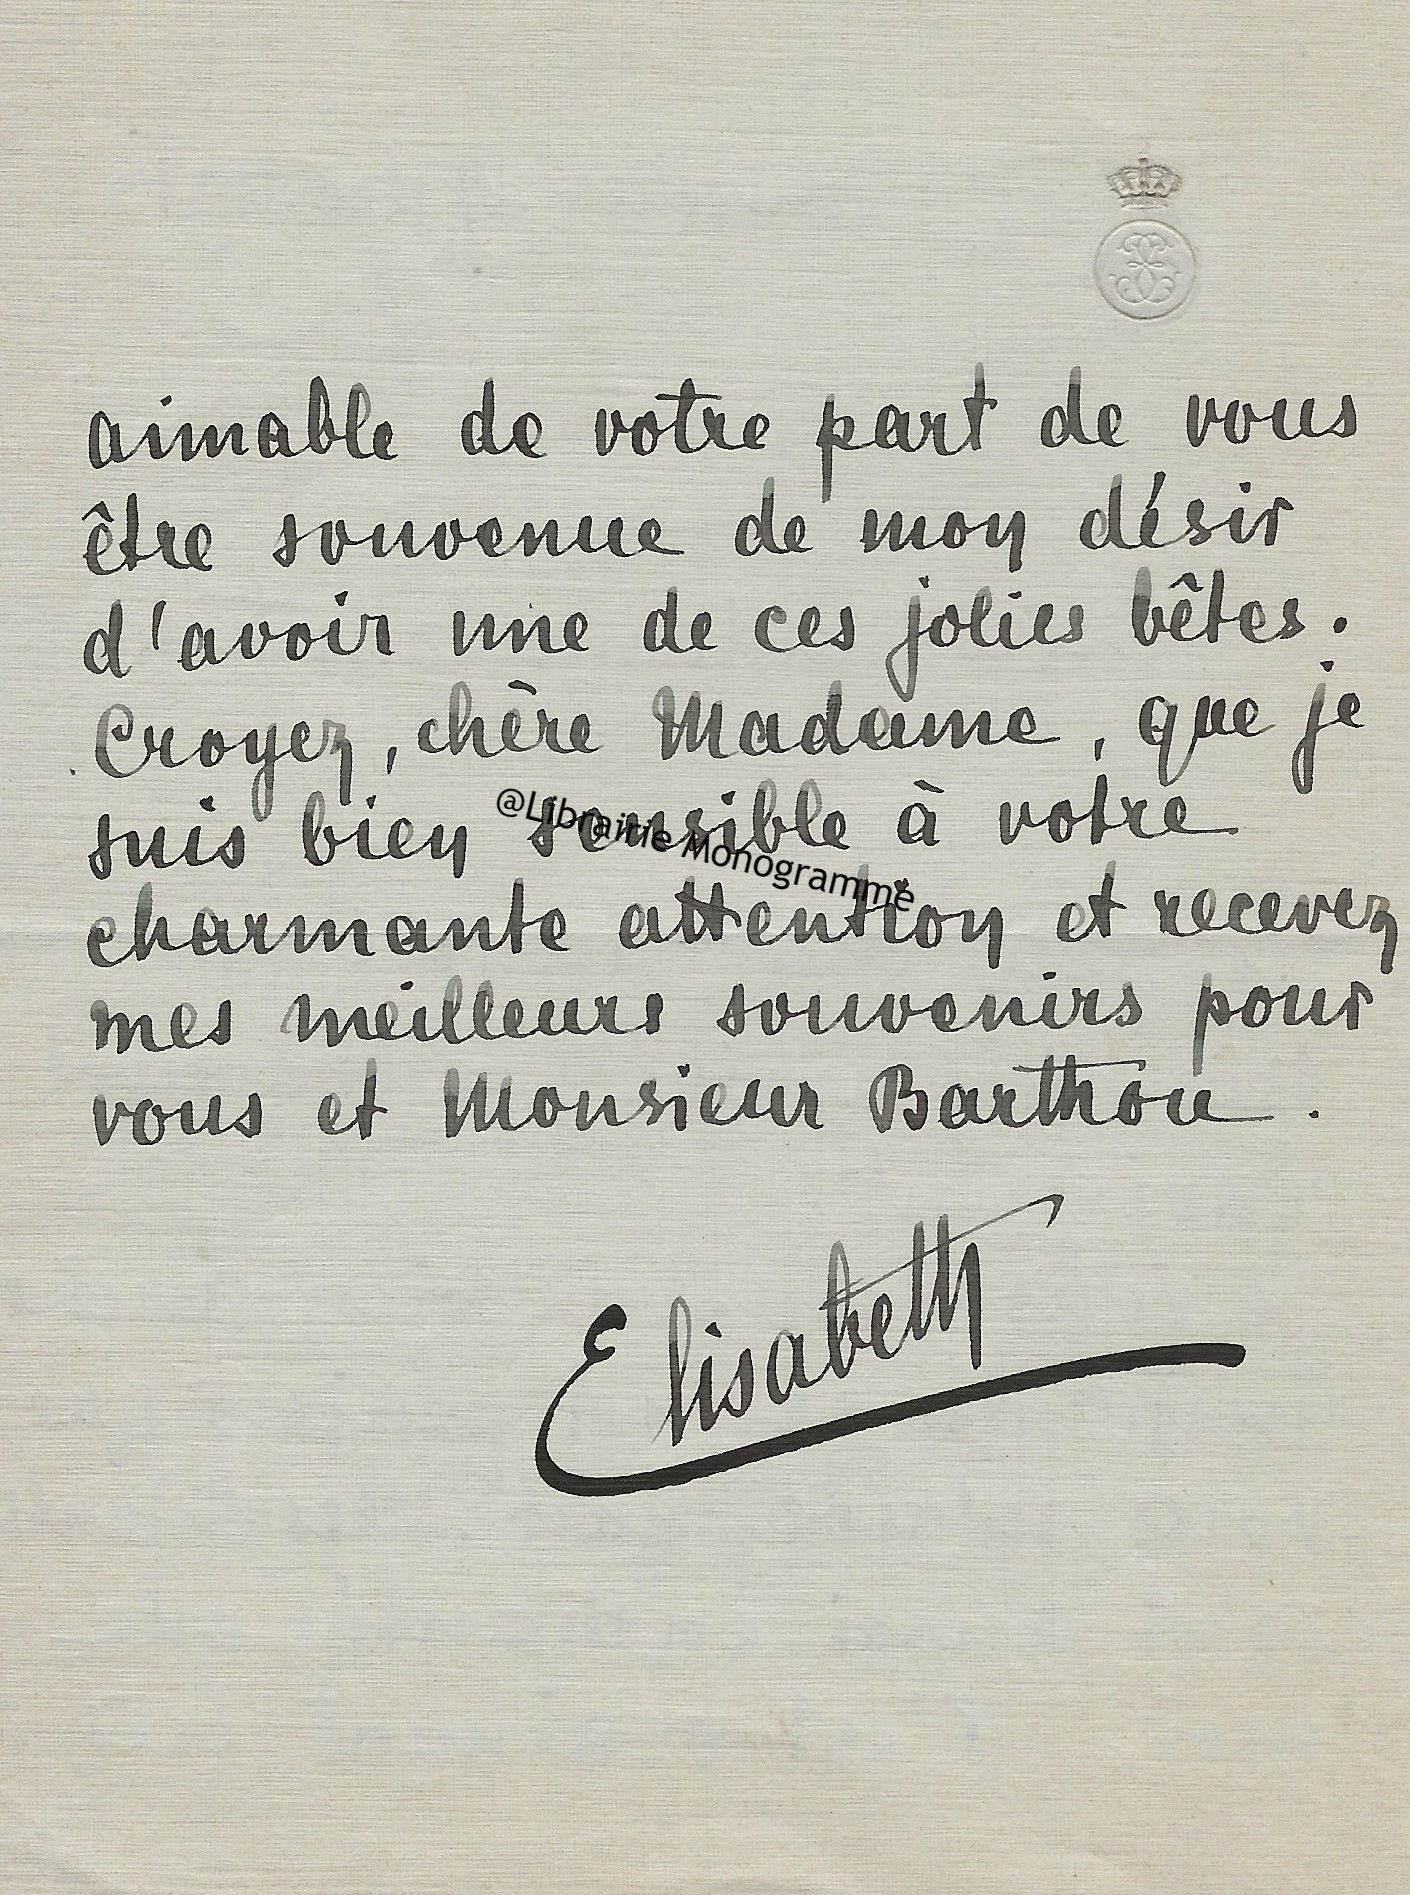 aimable de votre part de vous
être souvenue de mon désir
d'avoir une de ces jolies bêtes.
Croyez, chère Madame, que je
suis bien sensible à votre
@Librairie Monogramme
charmante attention et recevez
mes meilleurs souvenirs pour
vous et Monsieur Barthou.
Elisabeth